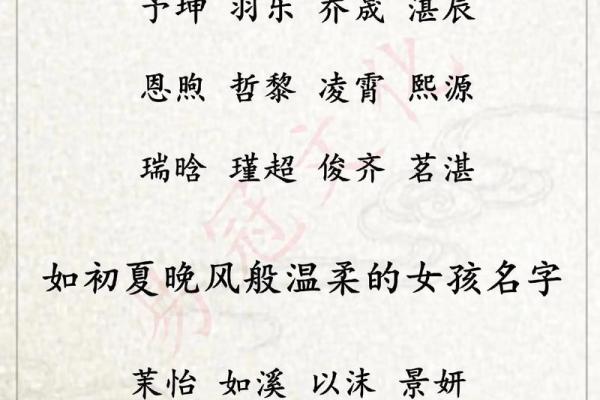 予坤 羽乐 乔晟 湛辰
恩煦 哲黎 凌霄 熙源
瑞晗 瑾超 俊齐 茗湛
如初夏晚风般温柔的女孩名字
茉怡 如溪 以沫 景妍